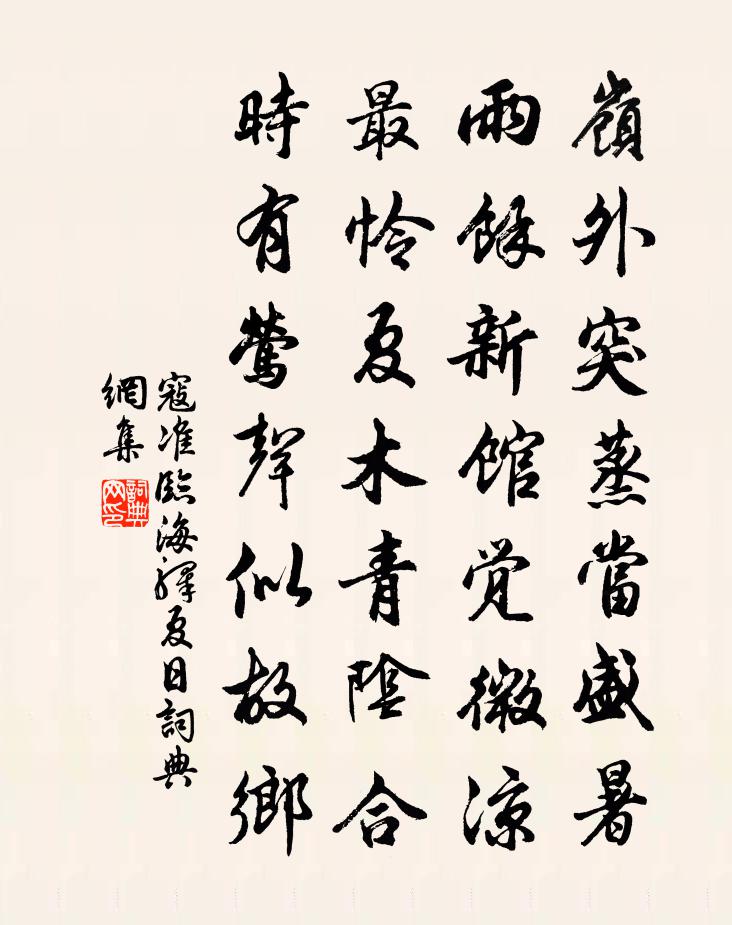 嶺外炎蒸當盛暑
雨餘新館觉微涼
最怜夏木青陰合
時有鶯聲似故鄉
寇准臨海驛夏日詞典
網集
詞典網印